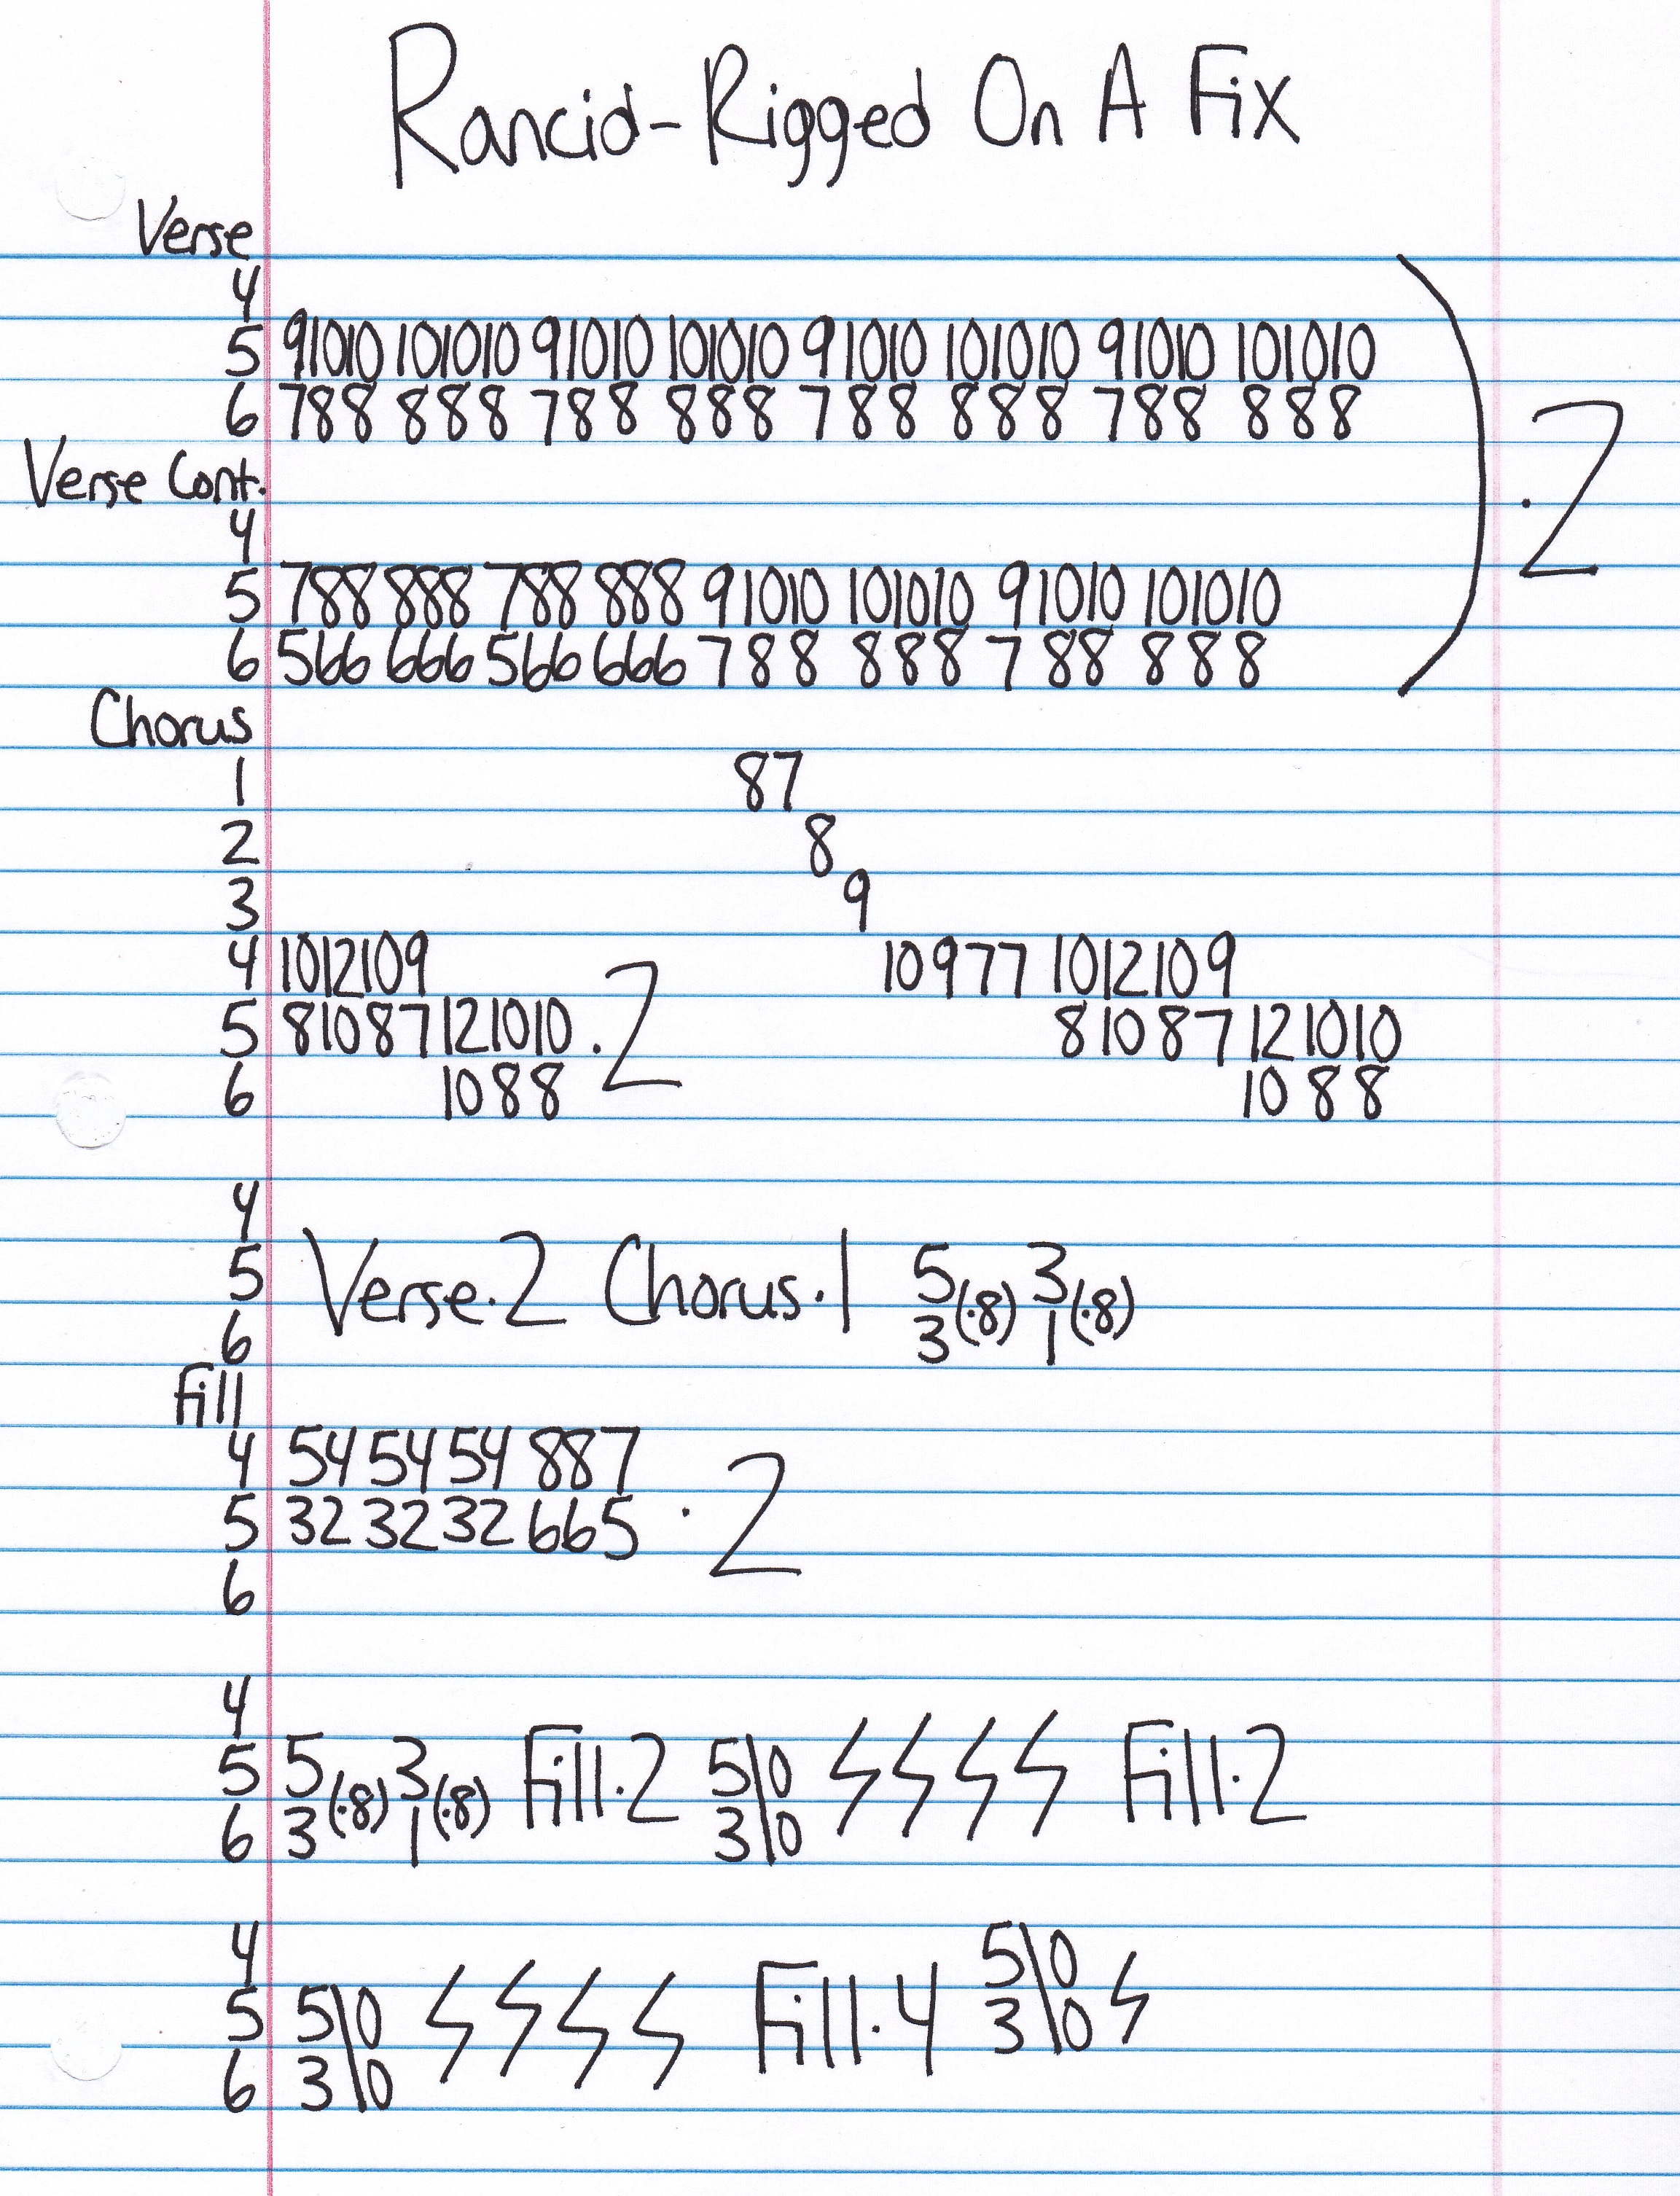 Rancid-Rigged On A Fix
Verse
4
5 91010 101010 91010 101010 91010 101010 91010 101010
6 788 888 788 888 788 888 788 888
Verse Cont.
4
5 788 888 788 888 91010 101010 91010 101010
6 566 666 566 666 788 888 788 888
) ·2
Chorus
1 87
2 8
3 9
4 1012109 10977 1012109
5 81087121010 ·2 81087 121010
6 1088 1088
4
5 Verse·2 Chorus·1 5 (·8) 3 (·8)
6 3 1
Fill
4 54 54 54 887
5 32 32 32 665 ·2
6
4
5 5 (·8) 3 (·8) Fill·2 5\0 Fill·2
6 3 1 3\0
4 5\0
5 5\0 Fill·4 3\0
6 3\0